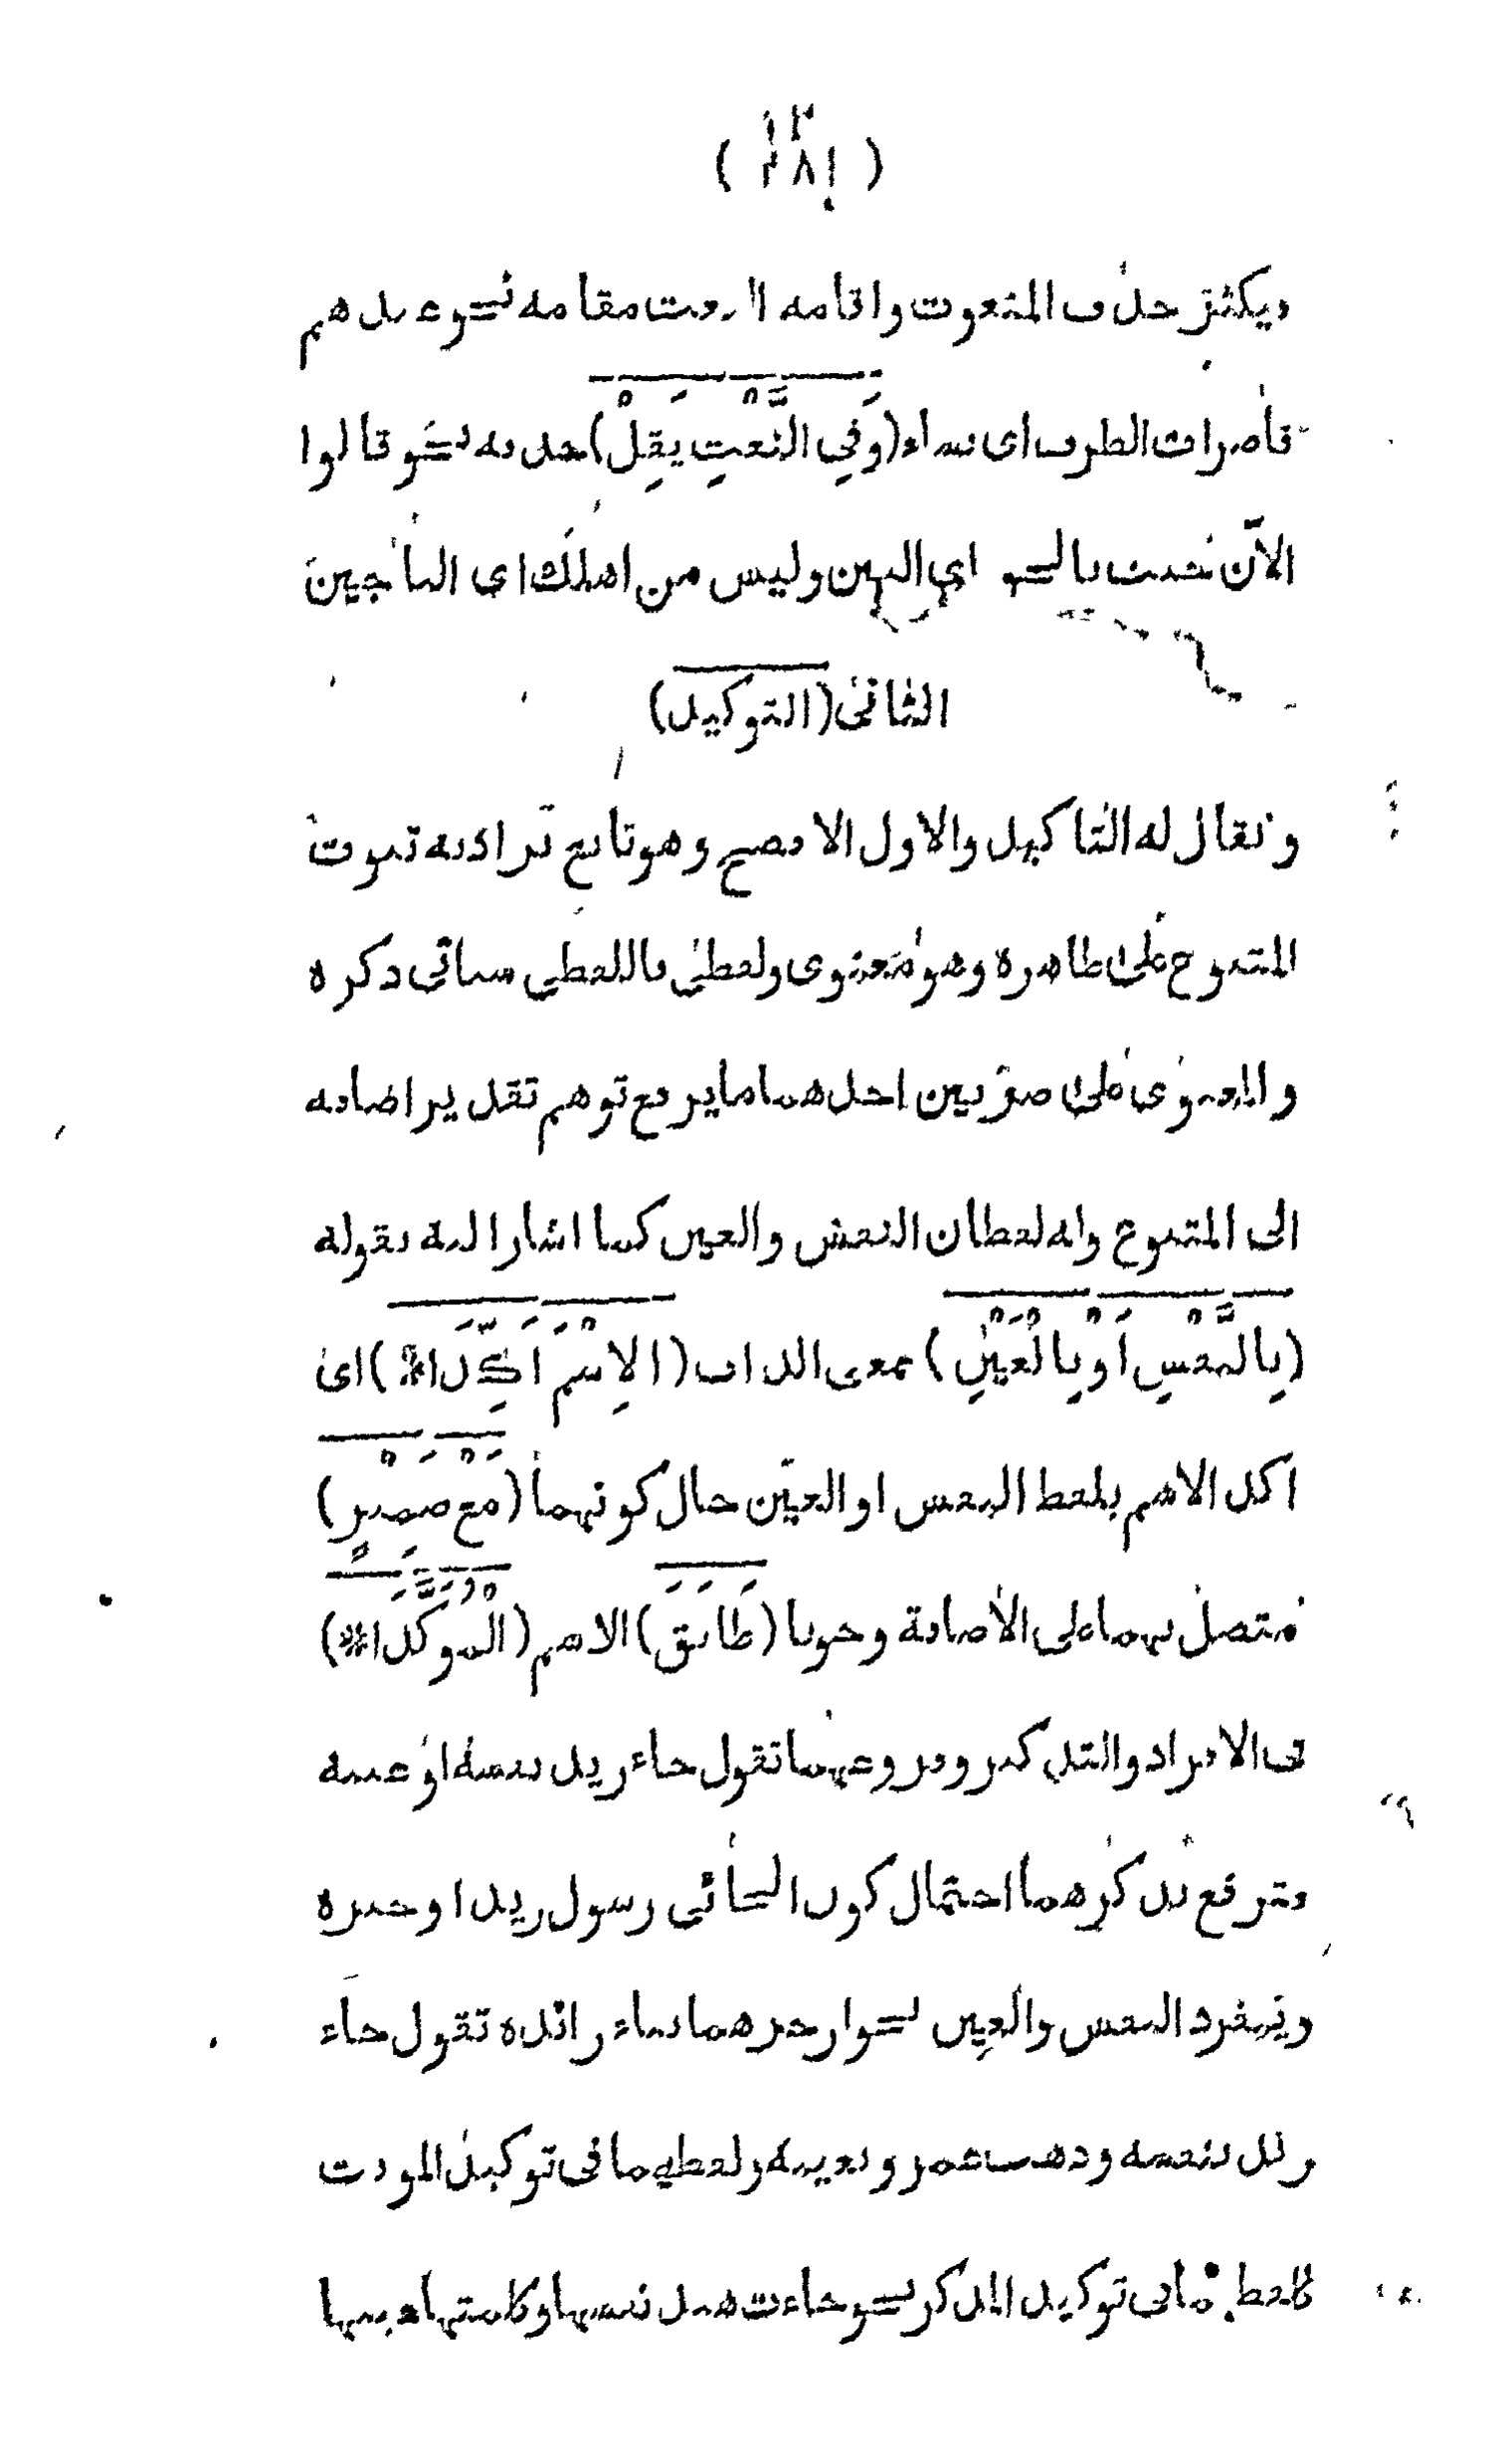 ( ٢٨١ )
ويكثر حذف المنعوت واقامه النعت مقامه نحو عندهم
قاصرات الطرف اى نساء (وَفِي النَّعْتِ يَقِلْ) حذفه نحو قالوا
الآن جئت بالحق اى البين وليس من اهلك اى الناجين
الثانى (التوكيد)
ويقال له التاكيد والاول الافصح وهو تابع يراد به ثبوت
المتبوع على ظاهره وهو معنوى ولفظى فاللفظي سياتى ذكره
والمعنوى على ضربين احدهما ما يرفع توهم تقدير اضافه
الى المتبوع وله لفظان النفس والعين كما اشار اليه بقوله
(بِالنَّفْسِ اَوْ بِالْعَيْنِ) بمعنى الذات (الاِسْمُ اُكِّدَا *) اى
اكد الاسم بلفظ النفس او العين حال كونهما (مَعْ ضَمِيْرٍ)
متصل بهما على الاضافة وجوبا (طَابَقَ) الاسم (الْمُوَكَّدَا *)
فى الافراد والتذكير وفروعهما تقول جاء زيد نفسه او عينه
فترفع بذكرهما احتمال كون الجائى رسول زيد او خبره
وينفرد النفس والعين بجواز جرهما بباء زائده تقول جاء
زيد بنفسه وذهب عمرو بعينه ولفظهما فى توكيد المونث
كلفظهما فى توكيد المذكر نحو جاءت هند نفسها وكلمتها عينها